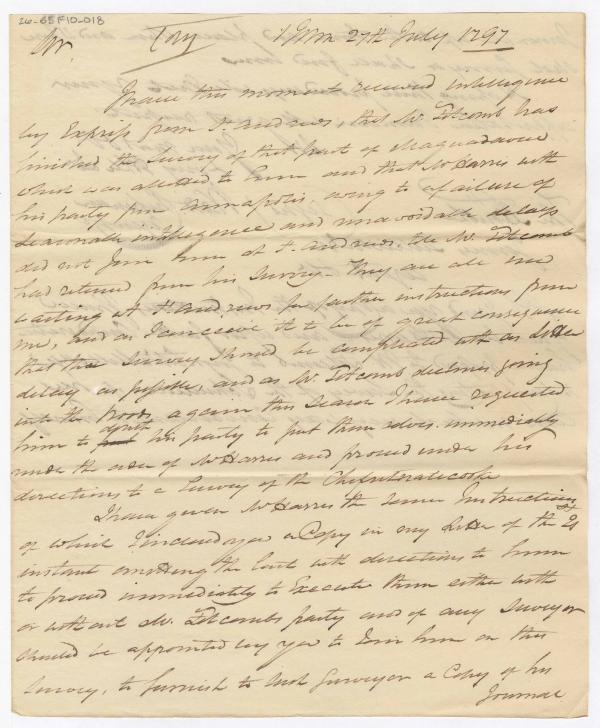 26-65F10-018
Sir, Copy St John 27th July 1797
I have this moment received intelligence
by Express from St. Andrews, that Mr. Titcomb has
finished the Survey of that part of Magaguadavic
which was allotted to him and that Mr Harris with
his party from Annapolis, owing to a failure of
seasonable intelligence and unavoidable delays
did not Join him at St. Andrews, till Mr. Titcomb
had returned from his Survey. They are all now
waiting at St. Andrews for further instructions from
me, and as I conceive it to be of great consequence
that the Survey should be compleated with as little
delay as possible, and as Mr. Titcomb declines going
into the Woods again this season I have requested
him to his party to put themselves immediately
under the order of Mr Harris and proceed under his
directions to a Survey of the
I have given Mr Harris the same Instructions
of which I inclosed you a Copy in my Letter of the 21st
instant omitting the last with directions to him
to proceed immediately to Execute them either with
or without Mr. Titcombs party and if any Surveyor
should be appointed by you to Join him on this
Survey, to furnish to such Surveyor a Copy of his
Journal